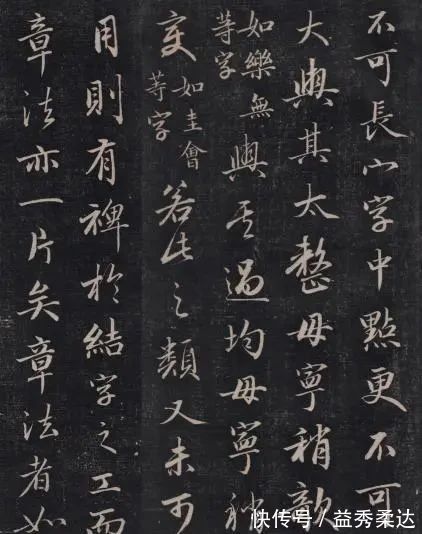 不可長心字中點更不可
大與其太整毋寧稍欹
如樂無
等字
與其過均毋寧稍
變
如圭會
等字
若此之類又未可
用則有裨於結字之工而
章法亦一片矣章法者如
快传号 / 益秀柔达